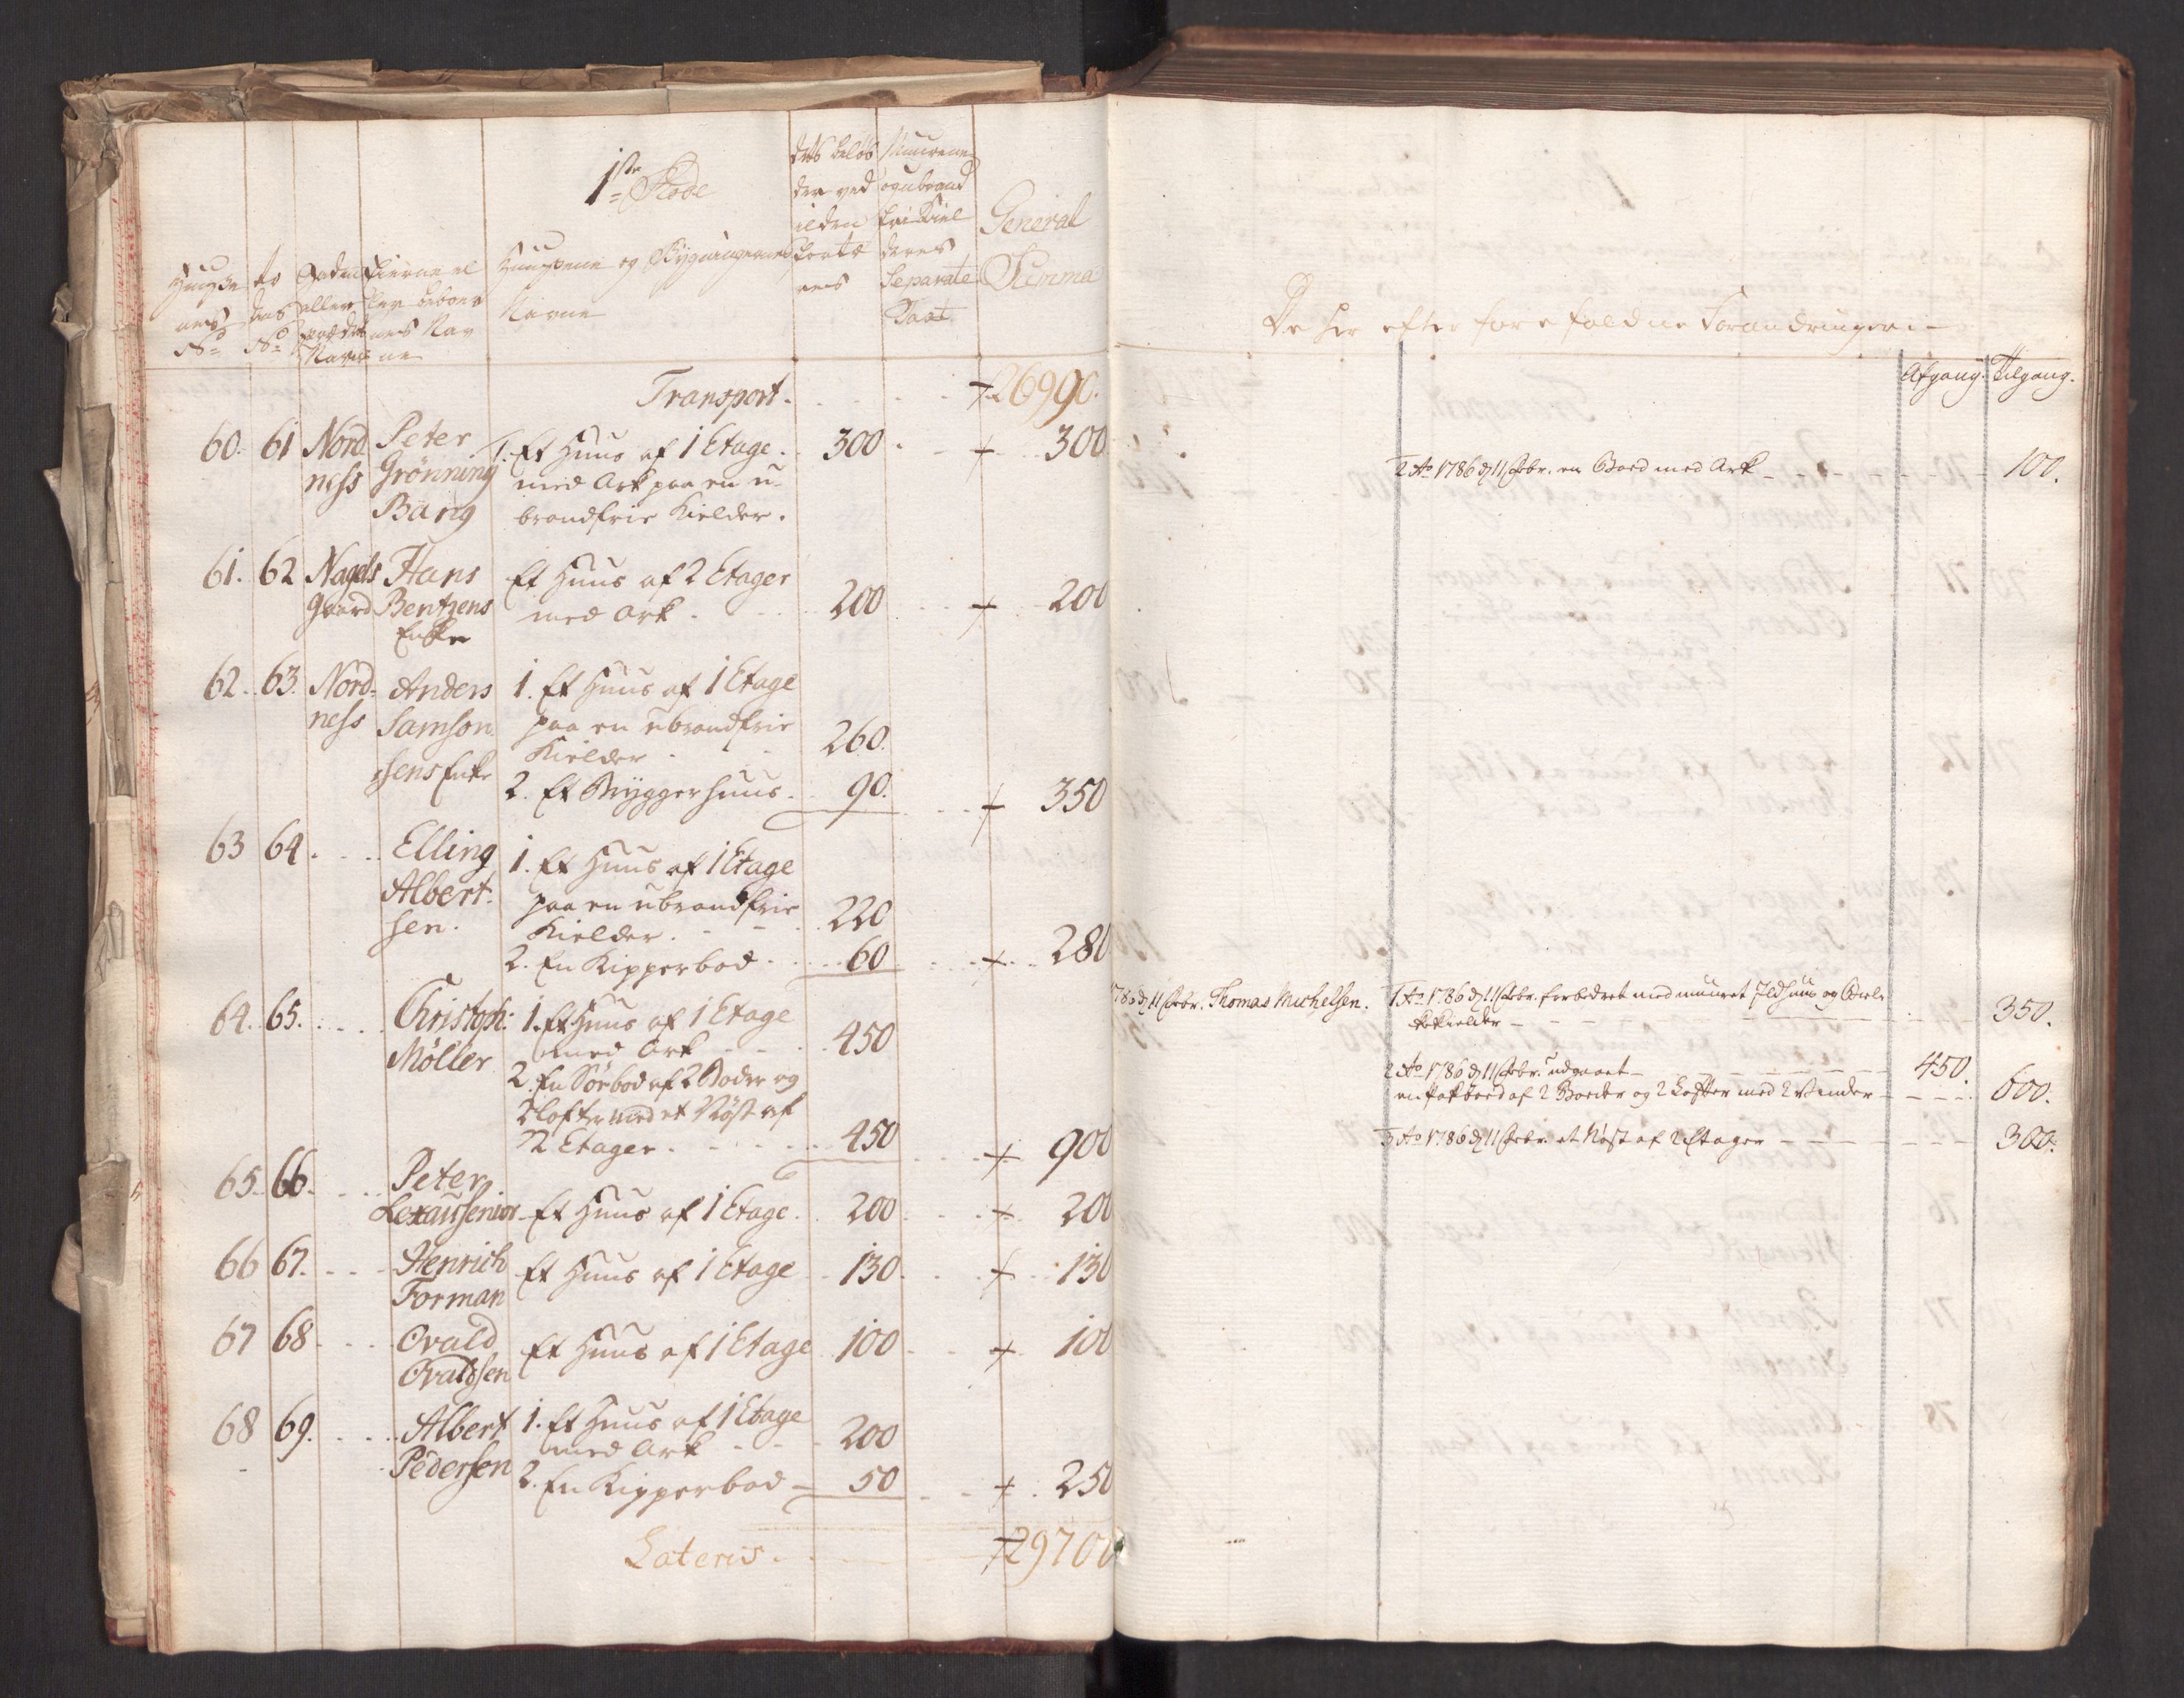 1ste Rode
Huuse nes No
No
Gadens eller Navne
Eiernes el ler beboer nes Nav ne
Huusene og Bygningernes Navne
dets beløb der ved ilden
Muurene ogubrand frie Kiel deres Separate Taxt
General Summa
Transport. 26990.
60. 61 Nord Peter 1. Et Huus af 1 Etage. 300. 300
ness Grönning med Ark paa en u-
Bang brandfrie Kielder.
61. 62 Nagels Hans Et Huus af 2 Etager
gaard Bentzens med Ark. 200 200
Enke
62. 63. Nord- Anders 1. Et Huus af 1 Etage
ness Samson paa en ubrandfrie
sens Enke Kielder 260.
2. Et Bryggerhuus. 90. 350
63 64. Elling 1. Et Huus af 1 Etage
Albert- paa en ubrandfrie
sen. Kielder. 220
2. En Kipperbod. 60 280
64. 65. Christoph: 1. Et Huus af 1 Etage
Møller med Ark 450
2. En Söebod af 2 Boder og
2 lofter med et Nöst af
2 Etager. 450 900
65. 66. Peter
Lexau senior Et Huus af 1 Etage. 200 200
66 67. Henrich Et Huus af 1 Etage 130. 130
Forman
67 68 Ovald Et Huus af 1 Etage 100 100
Ovaldsen
68 69. Albert 1. Et Huus af 1 Etage
med Ark 200
Pedersen 2. En Kipperbod 50 250
Lateris. 29700
De her efter forefaldne Forandringer.
Afgang. Tilgang.
2 Ao 1786 d 11 Febr. en Boed med Ark 100.
1786 d 11 Febr. Thomas Michelsen. 1 Ao 1786 d 11 Febr. forbedret med muuret Ildhuus og
Kielder 350.
2 Ao 1786 d 11 Febr. udgaaet 450.
en Pakboed af 2 Boeder og 2 Lofter med 2 Vinder 600.
3 Ao 1786 d 11 Febr. et Nöst af 2 Etager 300.